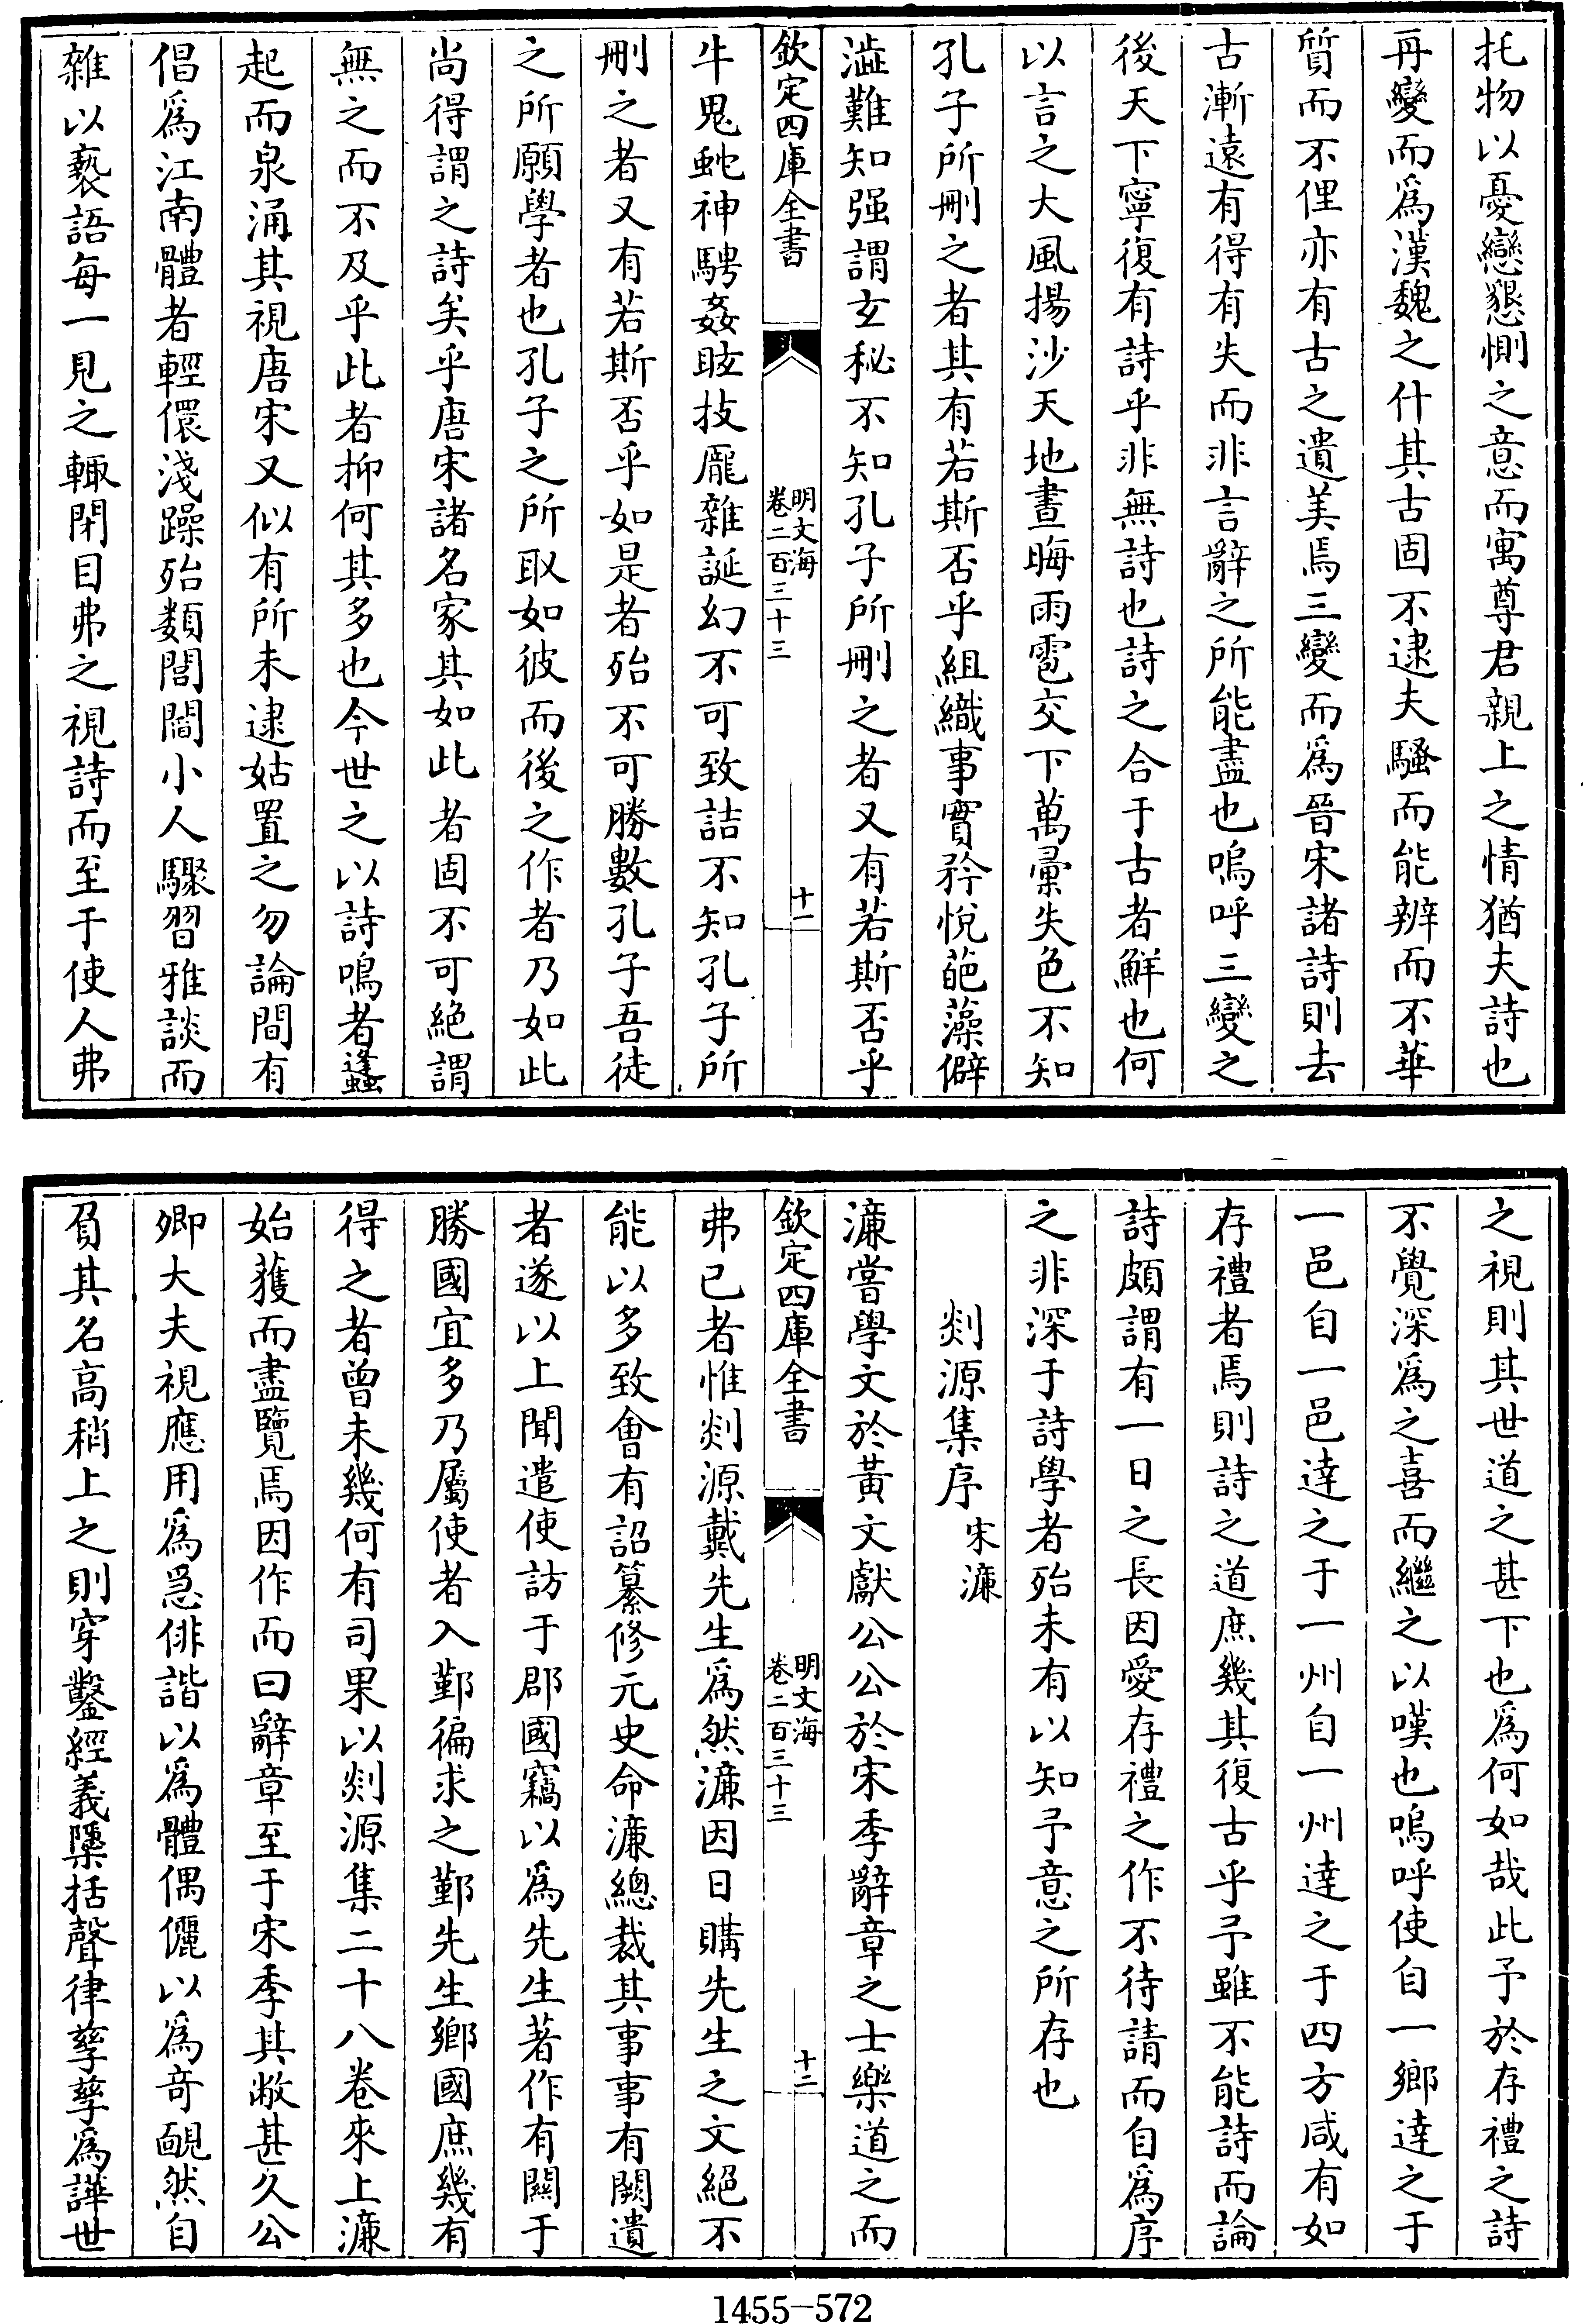 托物以憂戀懇惻之意而寓尊君親上之情猶夫詩也
再變而爲漢魏之什其古固不逮夫騷而能辨而不華
質而不俚亦有古之遺美焉三變而爲晉宋諸詩則去
古漸遠有得有失而非言辭之所能盡也嗚呼三變之
後天下寧復有詩乎非無詩也詩之合于古者鮮也何
以言之大風揚沙天地晝晦雨雹交下萬彙失色不知
孔子所刪之者其有若斯否乎組織事實矜悅葩藻僻
澁難知强謂玄秘不知孔子所刪之者又有若斯否乎
欽定四庫全書
明文海
卷二百三十三
十一
牛鬼蛇神騁姦眩技龎雜誕幻不可致詰不知孔子所
刪之者又有若斯否乎如是者殆不可勝數孔子吾徒
之所願學者也孔子之所取如彼而後之作者乃如此
尚得謂之詩矣乎唐宋諸名家其如此者固不可絶謂
無之而不及乎此者抑何其多也今世之以詩鳴者蠭
起而泉涌其視唐宋又似有所未逮姑置之勿論間有
倡爲江南體者輕儇淺躁殆類閭閻小人驟習雅談而
雜以褻語每一見之輙閉目弗之視詩而至于使人弗
之視則其世道之甚下也爲何如哉此予於存禮之詩
不覺深爲之喜而繼之以嘆也嗚呼使自一鄉達之于
一邑自一邑達之于一州自一州達之于四方咸有如
存禮者焉則詩之道庶幾其復古乎予雖不能詩而論
詩頗謂有一日之長因愛存禮之作不待請而自爲序
之非深于詩學者殆未有以知予意之所存也
剡源集序 宋濂
濂嘗學文於黃文獻公公於宋季辭章之士樂道之而
欽定四庫全書
明文海
卷二百三十三
十二
弗已者惟剡源戴先生爲然濂因日購先生之文絕不
能以多致會有詔纂修元史命濂總裁其事事有闕遺
者遂以上聞遣使訪于郡國竊以爲先生著作有關于
勝國宜多乃屬使者入鄞徧求之鄞先生鄉國庶幾有
得之者曾未幾何有司果以剡源集二十八卷來上濂
始獲而盡覽焉因作而曰辭章至于宋季其敝甚久公
卿大夫視應用爲急俳諧以爲體偶儷以爲竒靦然自
負其名高稍上之則穿鑿經義檃括聲律孳孳爲譁世
1455-572